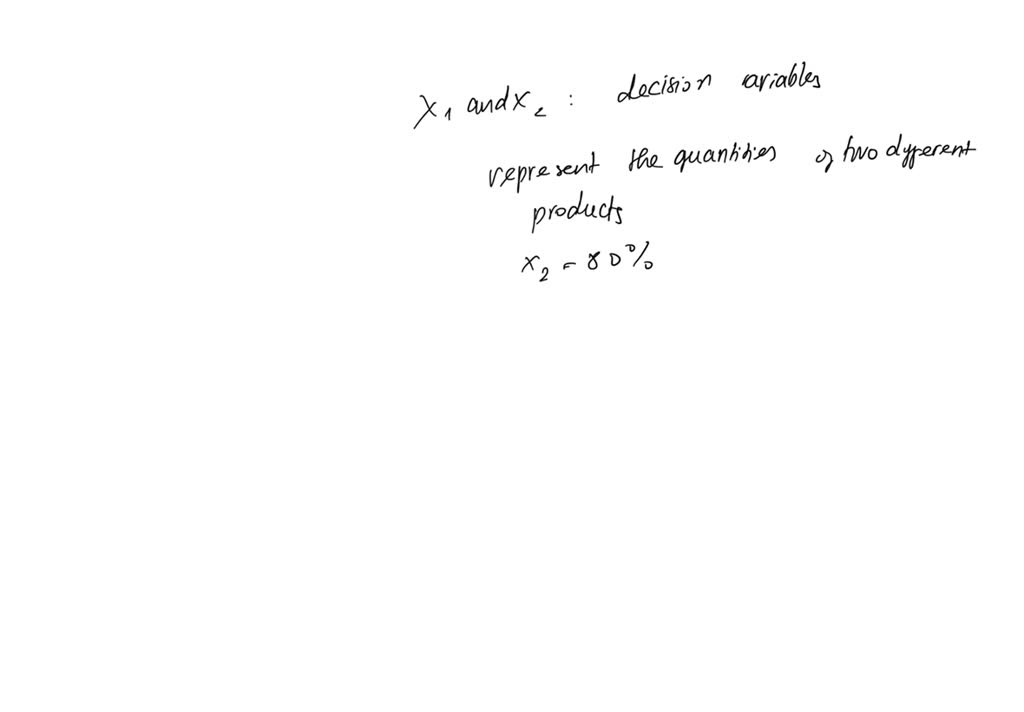 x₁ and x₂ : decision ariables
represent the quantities of two different
products
x₂ = 80%